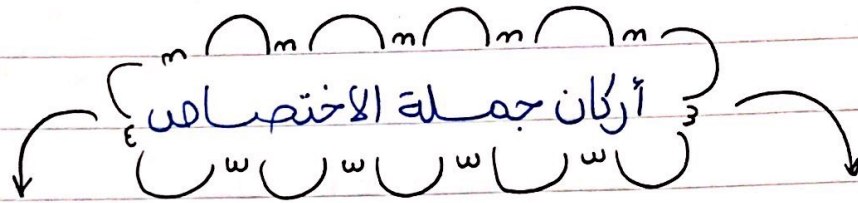 أركان جملة الاختصاص